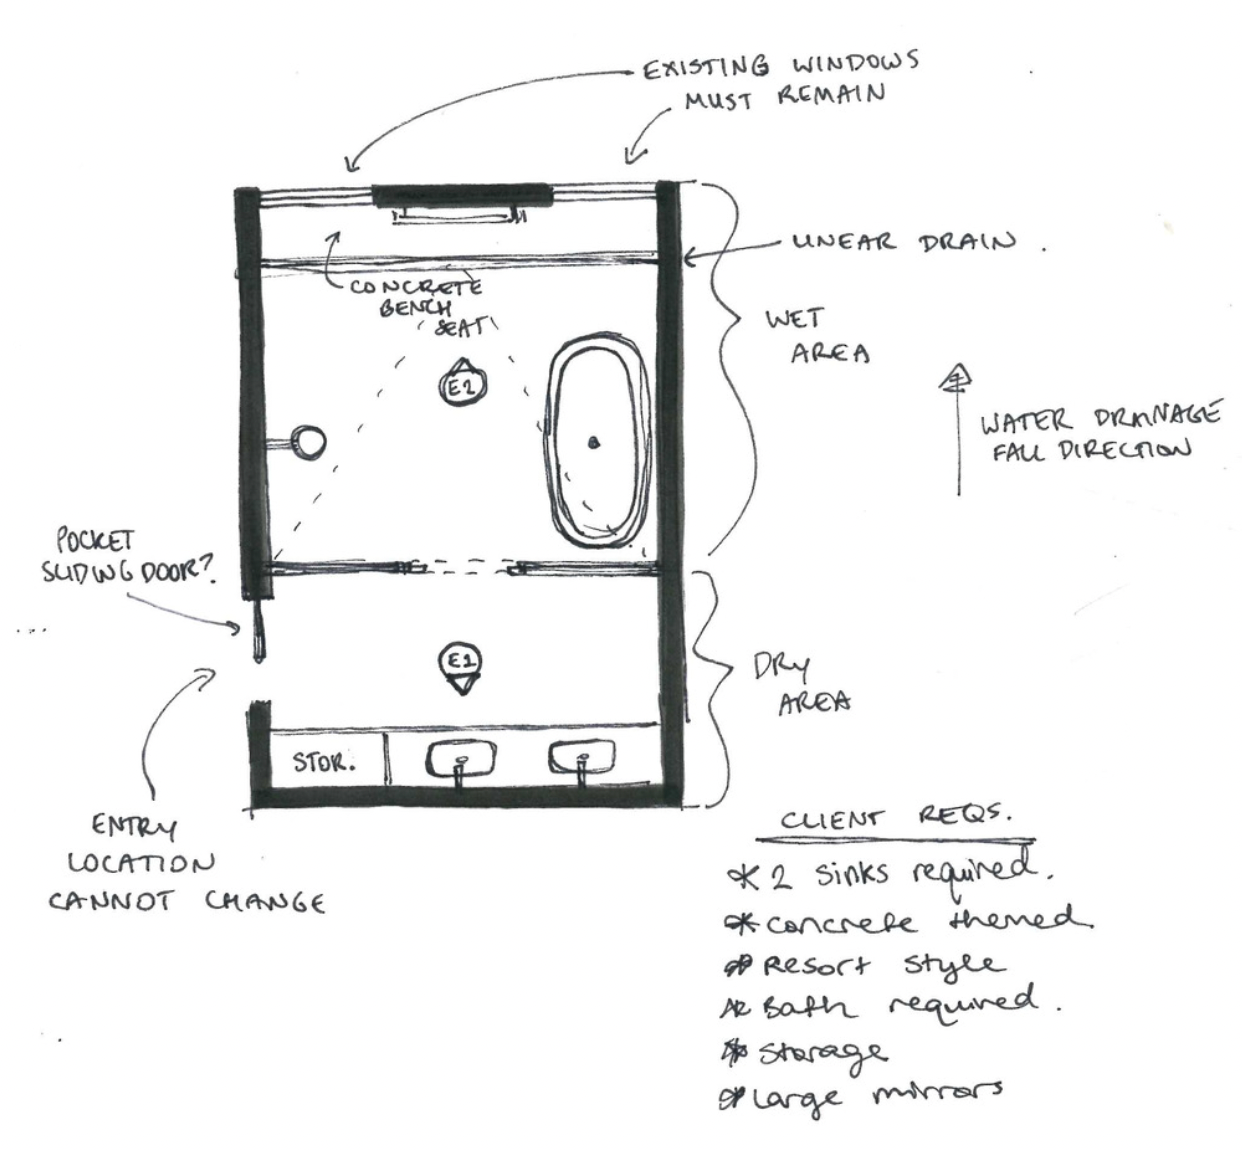 EXISTING WINDOWS
MUST REMAIN
LINEAR DRAIN.
CONCRETE
BENCH
SEAT
WET
AREA
E2
WATER DRAINAGE
FALL DIRECTION
POCKET
SLIDING DOOR?
...
E1
DRY
AREA
STOR.
ENTRY
LOCATION
CANNOT CHANGE
CLIENT REQS.
* 2 sinks required.
* concrete themed.
* Resort style
* Bath required.
* Storage
* Large mirrors